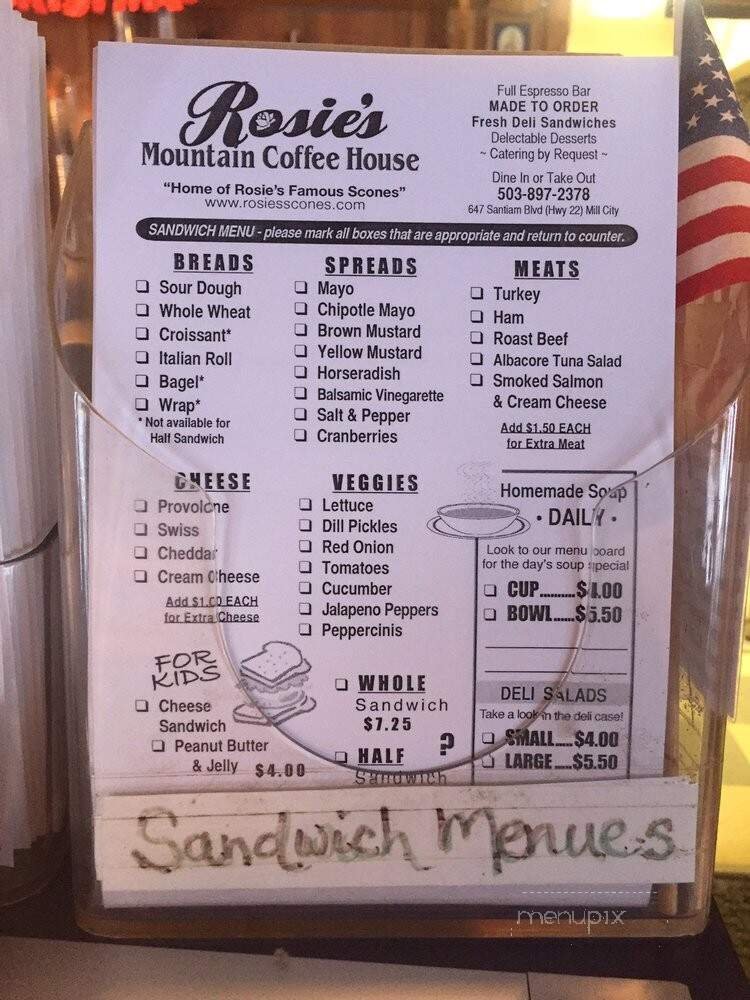 Rosie's
Mountain Coffee House
"Home of Rosie's Famous Scones"
www.rosiesscones.com
Full Espresso Bar
MADE TO ORDER
Fresh Deli Sandwiches
Delectable Desserts
~ Catering by Request ~
Dine In or Take Out
503-897-2378
647 Santiam Blvd (Hwy 22) Mill City
SANDWICH MENU - please mark all boxes that are appropriate and return to counter.
BREADS
Sour Dough
Whole Wheat
Croissant*
Italian Roll
Bagel*
Wrap*
* Not available for
Half Sandwich
SPREADS
Mayo
Chipotle Mayo
Brown Mustard
Yellow Mustard
Horseradish
Balsamic Vinegarette
Salt & Pepper
Cranberries
MEATS
Turkey
Ham
Roast Beef
Albacore Tuna Salad
Smoked Salmon
& Cream Cheese
Add $1.50 EACH
for Extra Meat
CHEESE
Provolone
Swiss
Cheddar
Cream Cheese
Add $1.00 EACH
for Extra Cheese
VEGGIES
Lettuce
Dill Pickles
Red Onion
Tomatoes
Cucumber
Jalapeno Peppers
Peppercinis
Homemade Soup
• DAILY •
Look to our menu board
for the day's soup special
CUP..........$4.00
BOWL......$5.50
DELI SALADS
Take a look in the deli case!
SMALL.....$4.00
LARGE.....$5.50
FOR
KIDS
Cheese
Sandwich
Peanut Butter
& Jelly $4.00
WHOLE
Sandwich
$7.25
HALF ?
Sandwich
Sandwich Menues
menupix